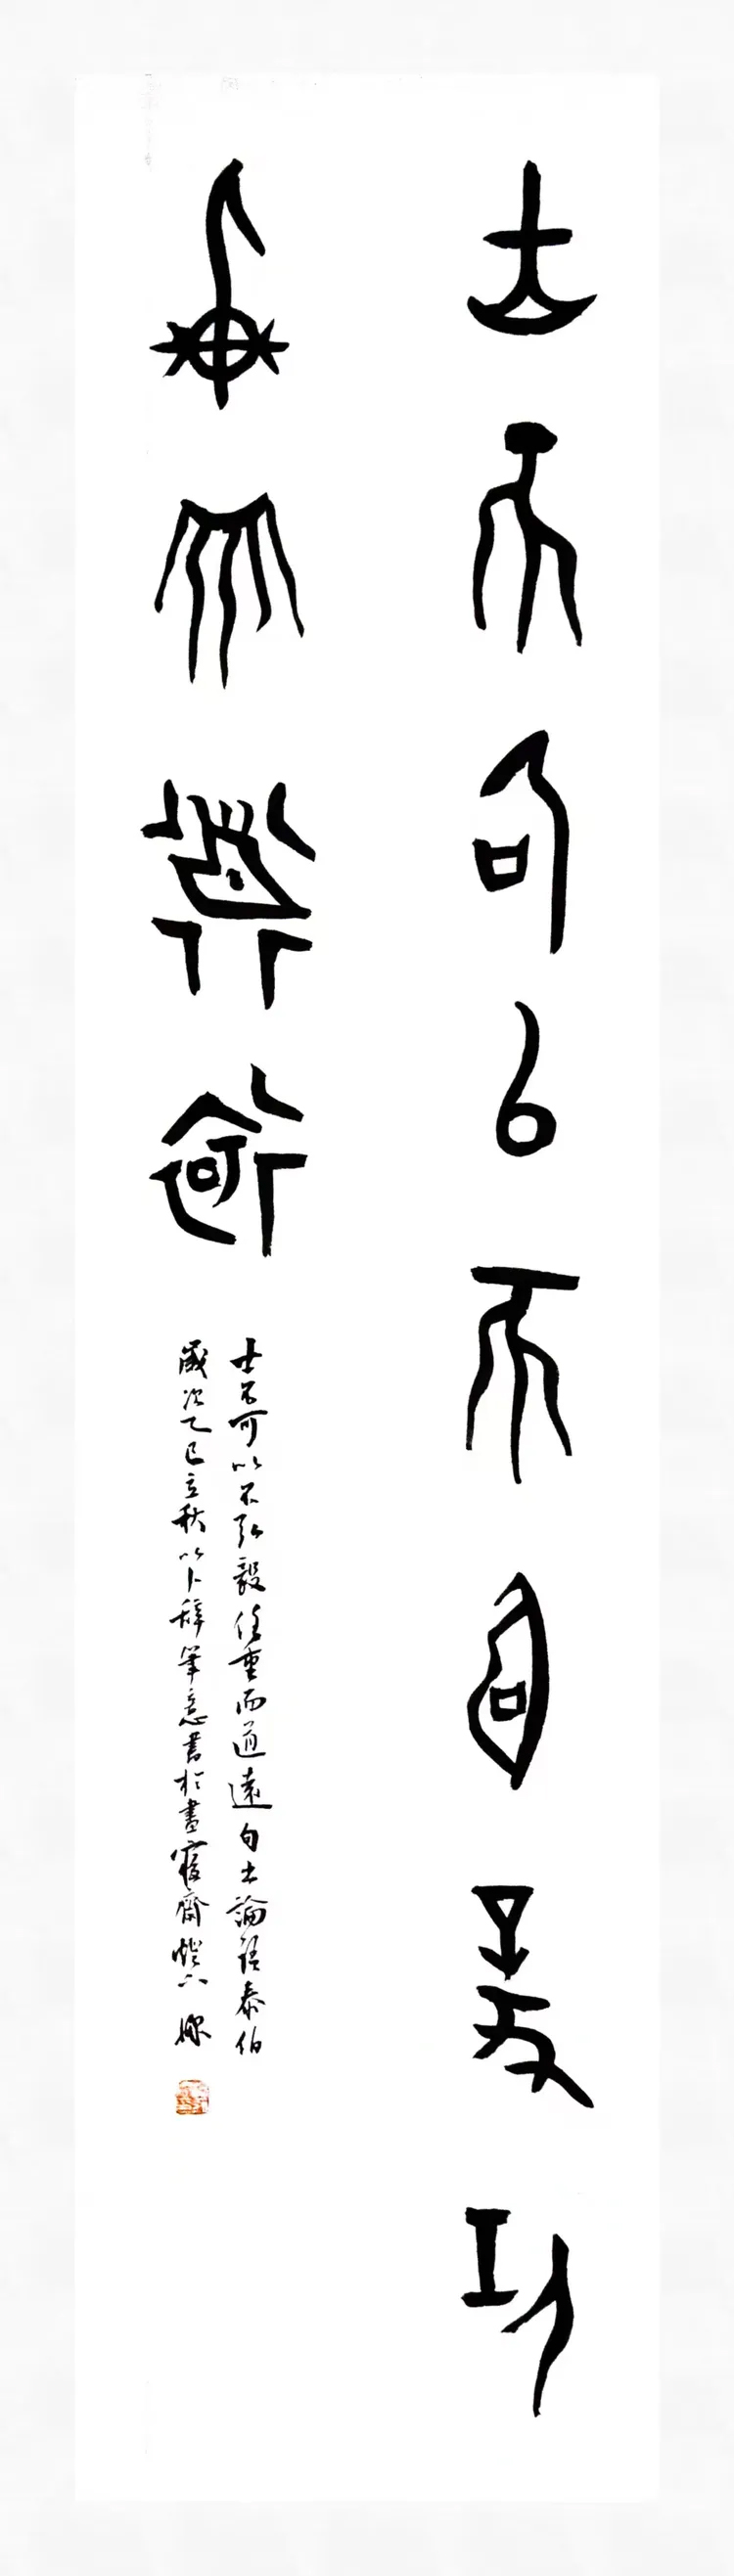 士不可以不弘毅任
重而道遠
士不可以不弘毅任重而道遠句出論語泰伯
歲次乙巳立秋以卜辭筆意書於畫寢齋